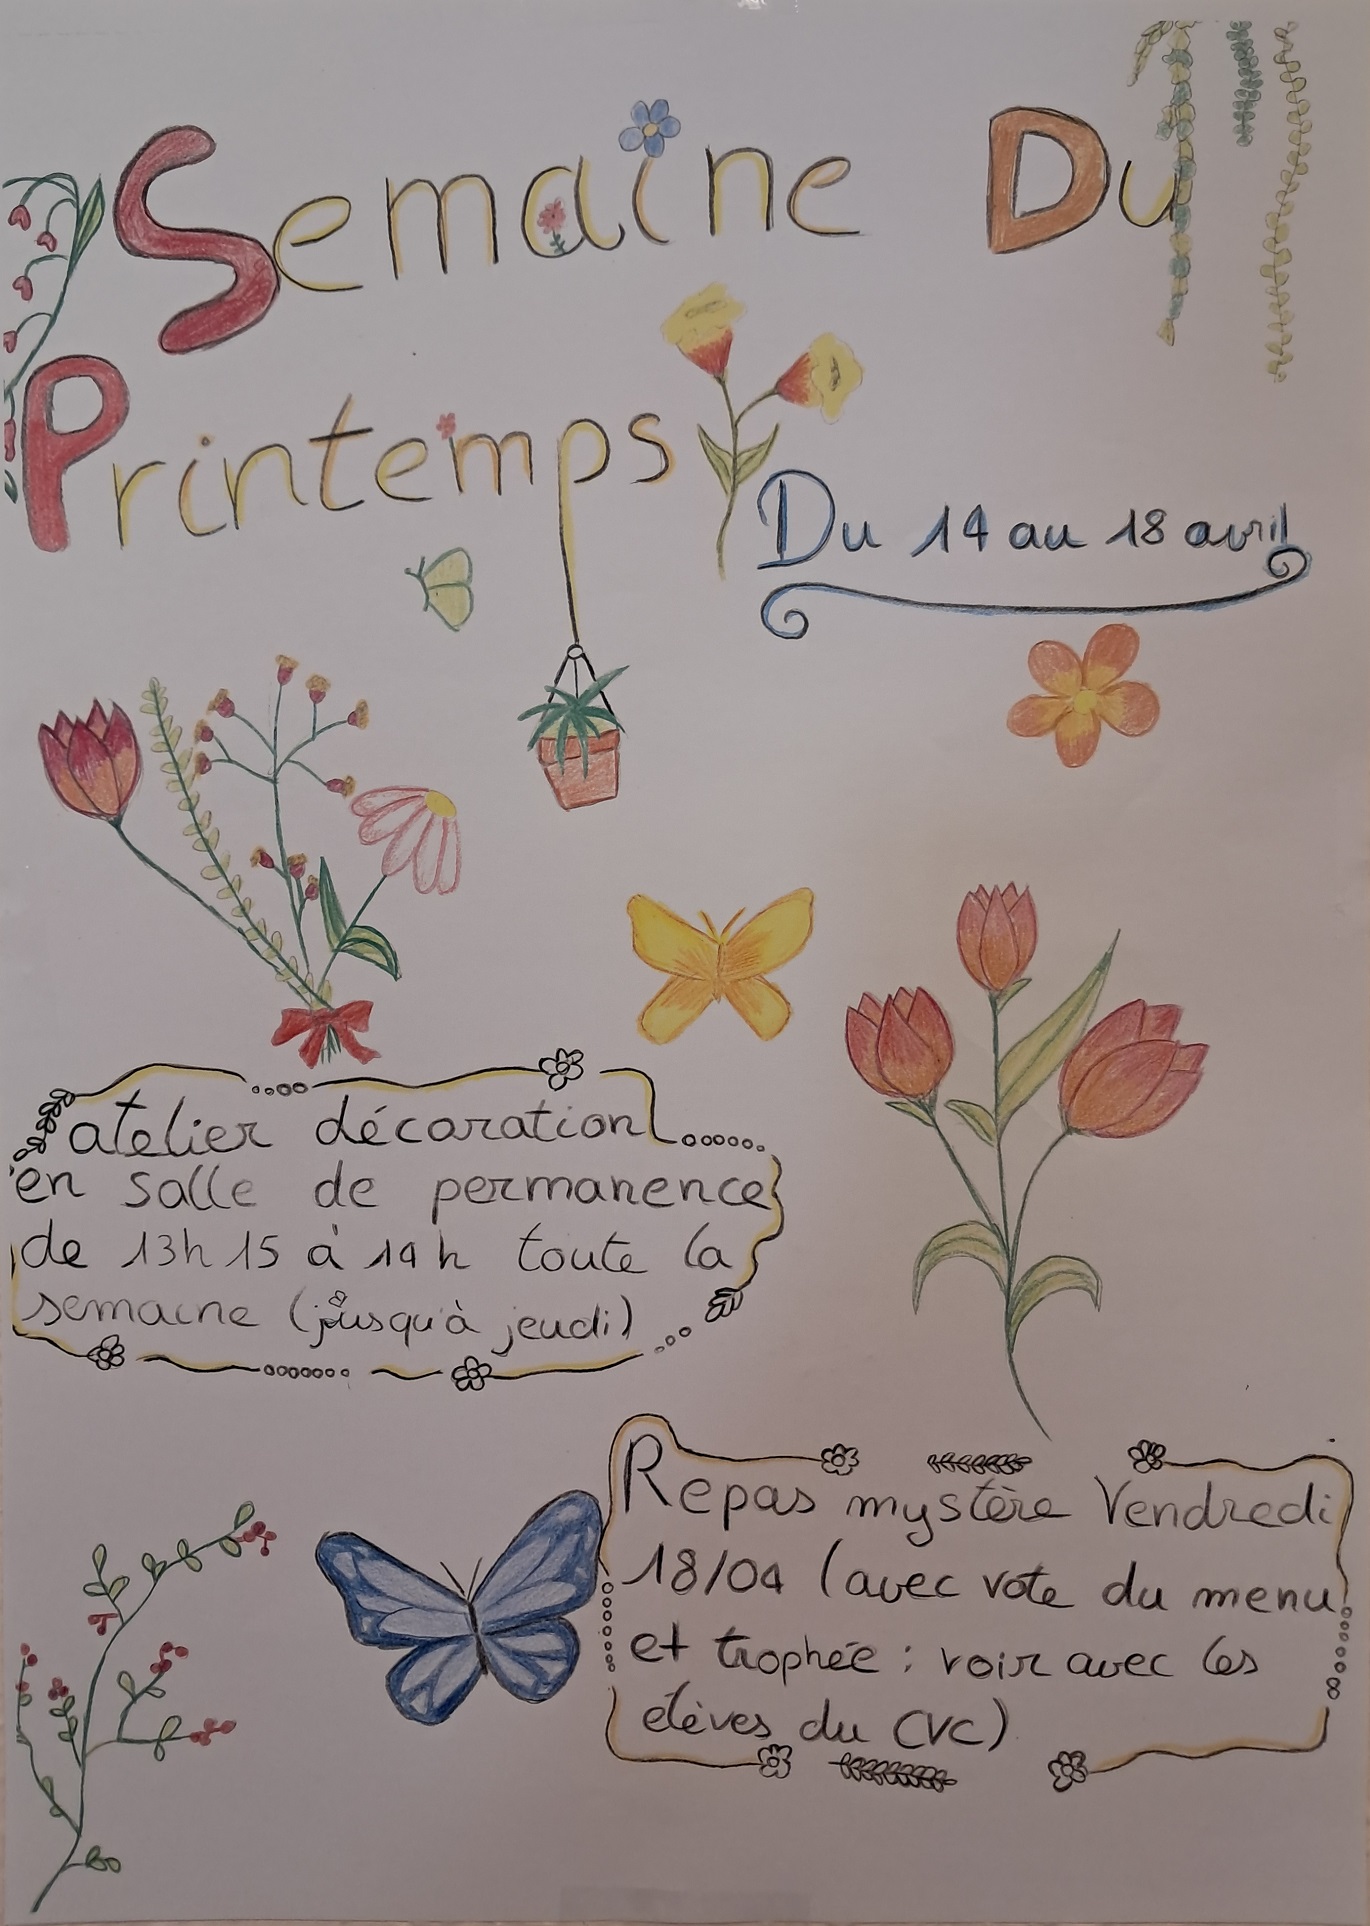 Semaine Du
Printemps
Du 14 au 18 avril
atelier décoration
en salle de permanence
de 13h15 à 14h toute la
semaine (jusqu'à jeudi)
Repas mystère Vendredi
18/04 (avec vote du menu
et trophée : voir avec les
élèves du CVC)